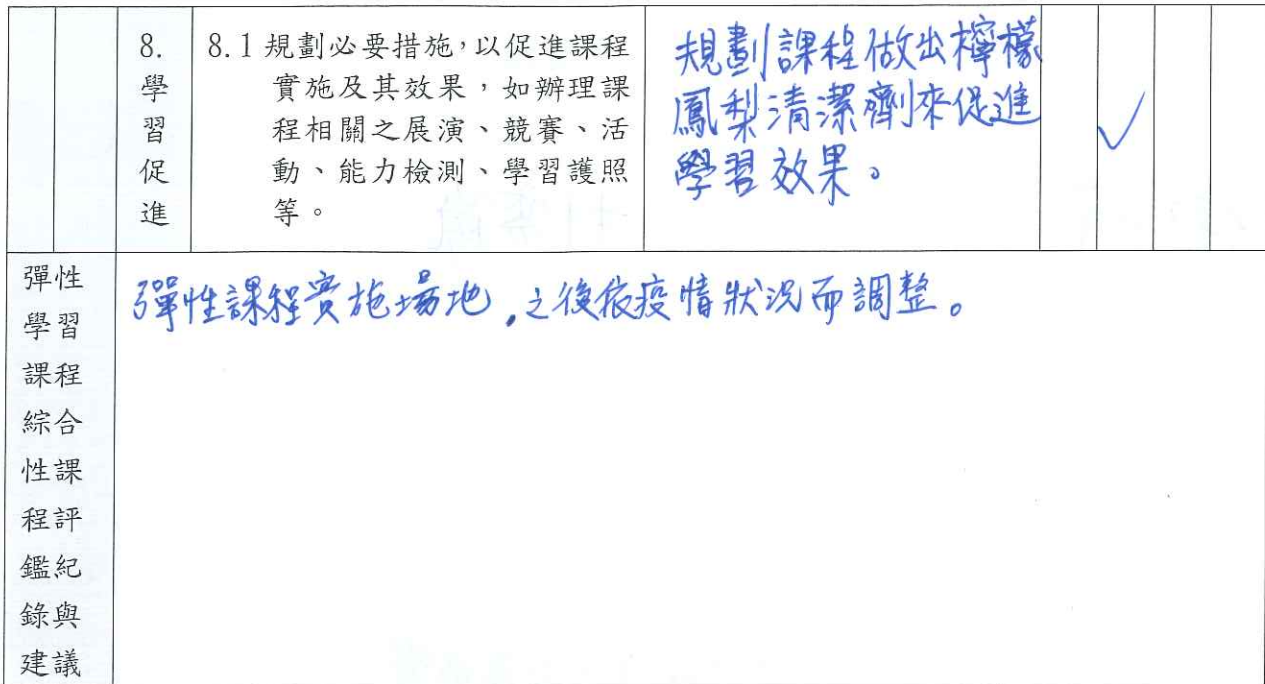 8.
學
習
促
進
8.1 規劃必要措施，以促進課程
實施及其效果，如辦理課
程相關之展演、競賽、活
動、能力檢測、學習護照
等。
規劃課程做出檸檬
鳳梨清潔劑來促進
學習效果。
✓
彈性
學習
課程
綜合
性課
程評
鑑紀
錄與
建議
彈性課程實施場地，之後依疫情狀況而調整。